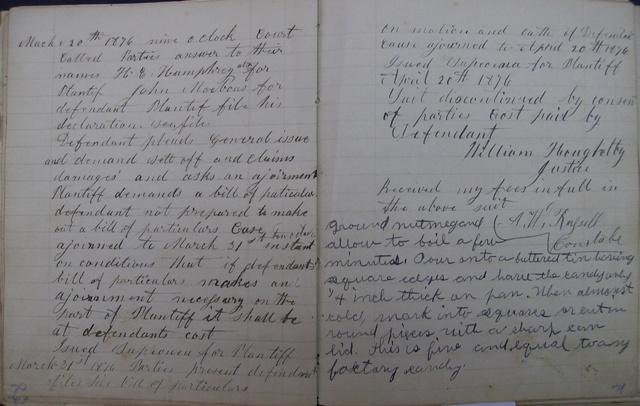 March 20th 1876 nine o clock Court
Called Parties answer to their
names H. C. Humphrey aty for
Plantif John Moebous for
defendant Plantif file his
declaration see file
Defendant pleads General issue
and demand sett off and claims
damages and asks an ajoirnment
Plantiff demands a bill of paticulars
defendant not prepared to make
out a bill of particulars Case
ajourned to March 31st instant
on conditions that if defendants
bill of particulars makes an
ajournment necessary on the
part of Plantiff it shall be
at defendants cost
Issued Supoenea for Plantiff
March 31st 1876 Parties present defendant
files his bill of particulars
on motion and oath of Defendant
cause ajourned to April 20th 1876
Issued Supoenea for Plantiff
April 20th 1876
Suit discontinued by consent
of parties Cost paid by
Defendant
William Houghalby
Justice
Received my fees in full in
the above suit
A. W. Russell
Constabe
ground nutmeg and
allow to boil a few
minutes. Pour onto a buttered tin having
square edges and have the candy only
1/4 inch thick on pan. When almost
cold, mark into squares or cut in
round pieces with a sharp can
lid. This is fine and equal to any
factory candy.